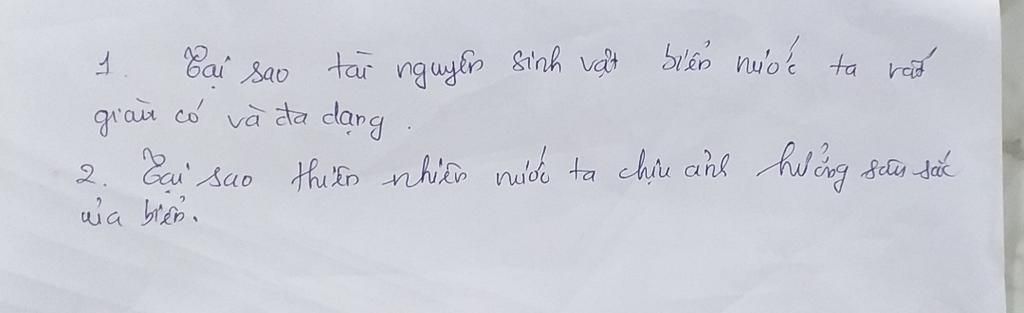 1. Tại sao tài nguyên sinh vật biển nước ta rất
giàu có và đa dạng.
2. Tại sao thiên nhiên nước ta chịu ảnh hưởng sâu sắc
của biển.